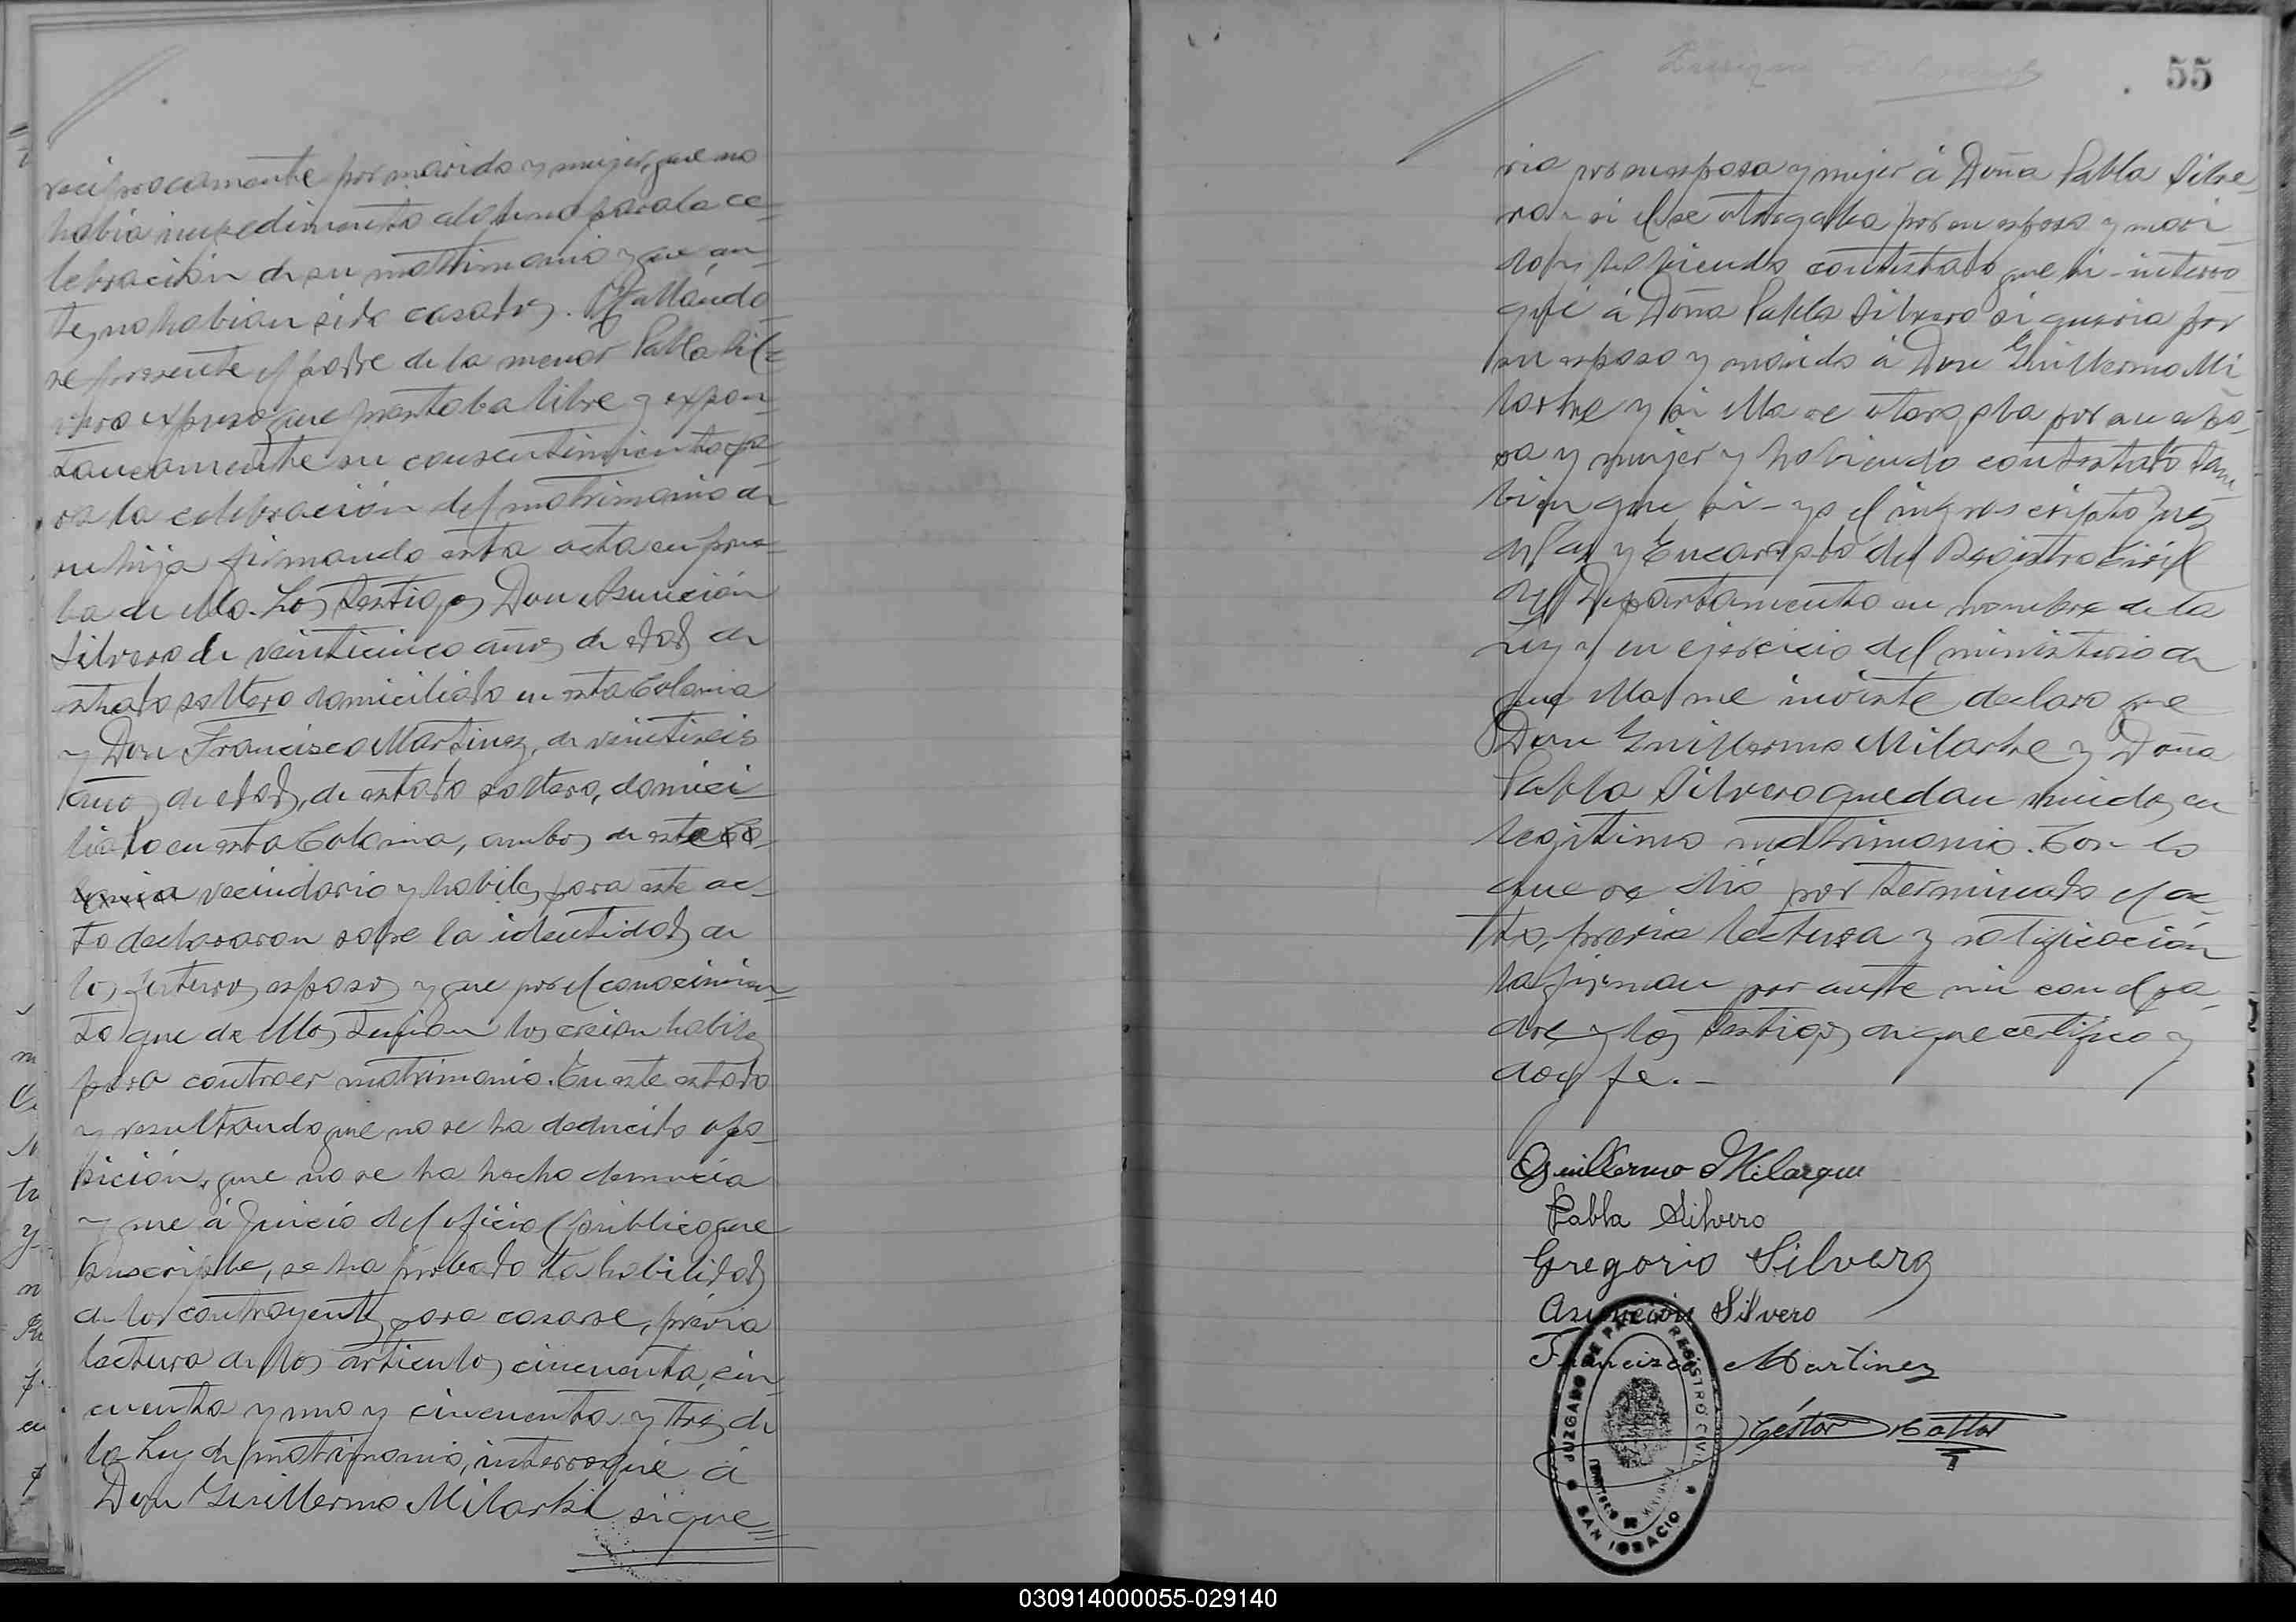 reciprocamente por marido y mujer, que no
habia impedimento alguno para la ce-
lebración de su matrimonio y que an-
tes no habian sido casados. Hallándo-
se presente el padre de la menor Pabla Sil-
vero expuso que prestaba libre y expon-
taneamente su consentimiento pa-
ra la celebración del matrimonio de
su hija firmando esta acta en prue-
ba de ello. Los testigos Don Asunción
Silvero de veinticinco años de edad de
estado soltero domiciliado en esta Colonia
y Don Francisco Martinez, de veintiseis
años de edad, de estado soltero, domici-
liado en esta Colonia, ambos de este Co-
lonia vecindario y habiles para este ac-
to declararon sobre la identidad de
los futuros esposos y que por el conocimien-
to que de ellos tenian los creian habiles
para contraer matrimonio. En este estado
y resultando que no se ha deducido opo-
sición, que no se ha hecho denuncia
y que á juicio del oficial público que
suscribe, se ha probado la habilidad
de los contrayentes para casarse, prévia
lectura de los articulos cincuenta, cin-
cuenta y uno y cincuenta y tres de
la Ley de matrimonio, interrogué á
Don Guillermo Milarke si que=
55
ria por su esposa y mujer á Doña Pabla Silve
ro y si él se otorgaba por su esposo y mari-
do y habiendo contestado que si - interro
gué á Doña Pabla Silvero si queria por
su esposo y marido á Don Guillermo Mi
larke y si ella se otorgaba por su espo-
sa y mujer y habiendo contestado tam
bien que si - yo el infrascripto Juez
de Paz y Encargado del Registro Civil
del Departamento en nombre de la
Ley y en ejercicio del ministerio de
que ella me inviste declaro que
Don Guillermo Milarke y Doña
Pabla Silvero quedan unidos en
legitimo matrimonio. Con lo
que se dió por terminado el ac-
to, previa lectura y ratificación
la firman por ante mi con el pa-
dre y los testigos de que certifico y
doy fe.-
Guillermo Milarque
Pabla Silvero
Gregorio Silvero
Asunción Silvero
Francisco Martinez
JUZGADO DE PAZ Y REGISTRO CIVIL
SAN IGNACIO
030914000055-029140